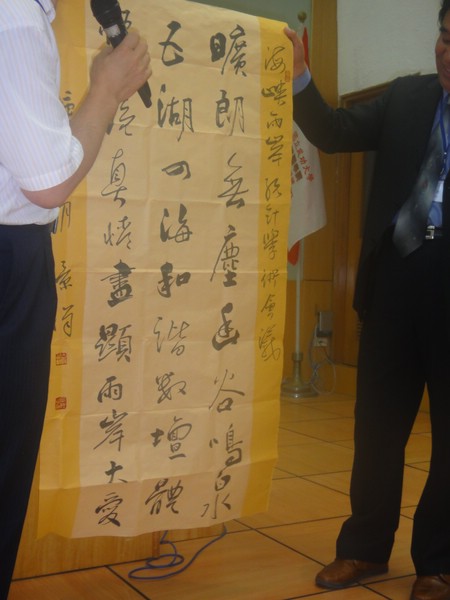 海峽兩岸統計學術會議
曠朗無塵幽谷鳴泉
五湖四海和諧數壇體
真情盡顯兩岸大愛